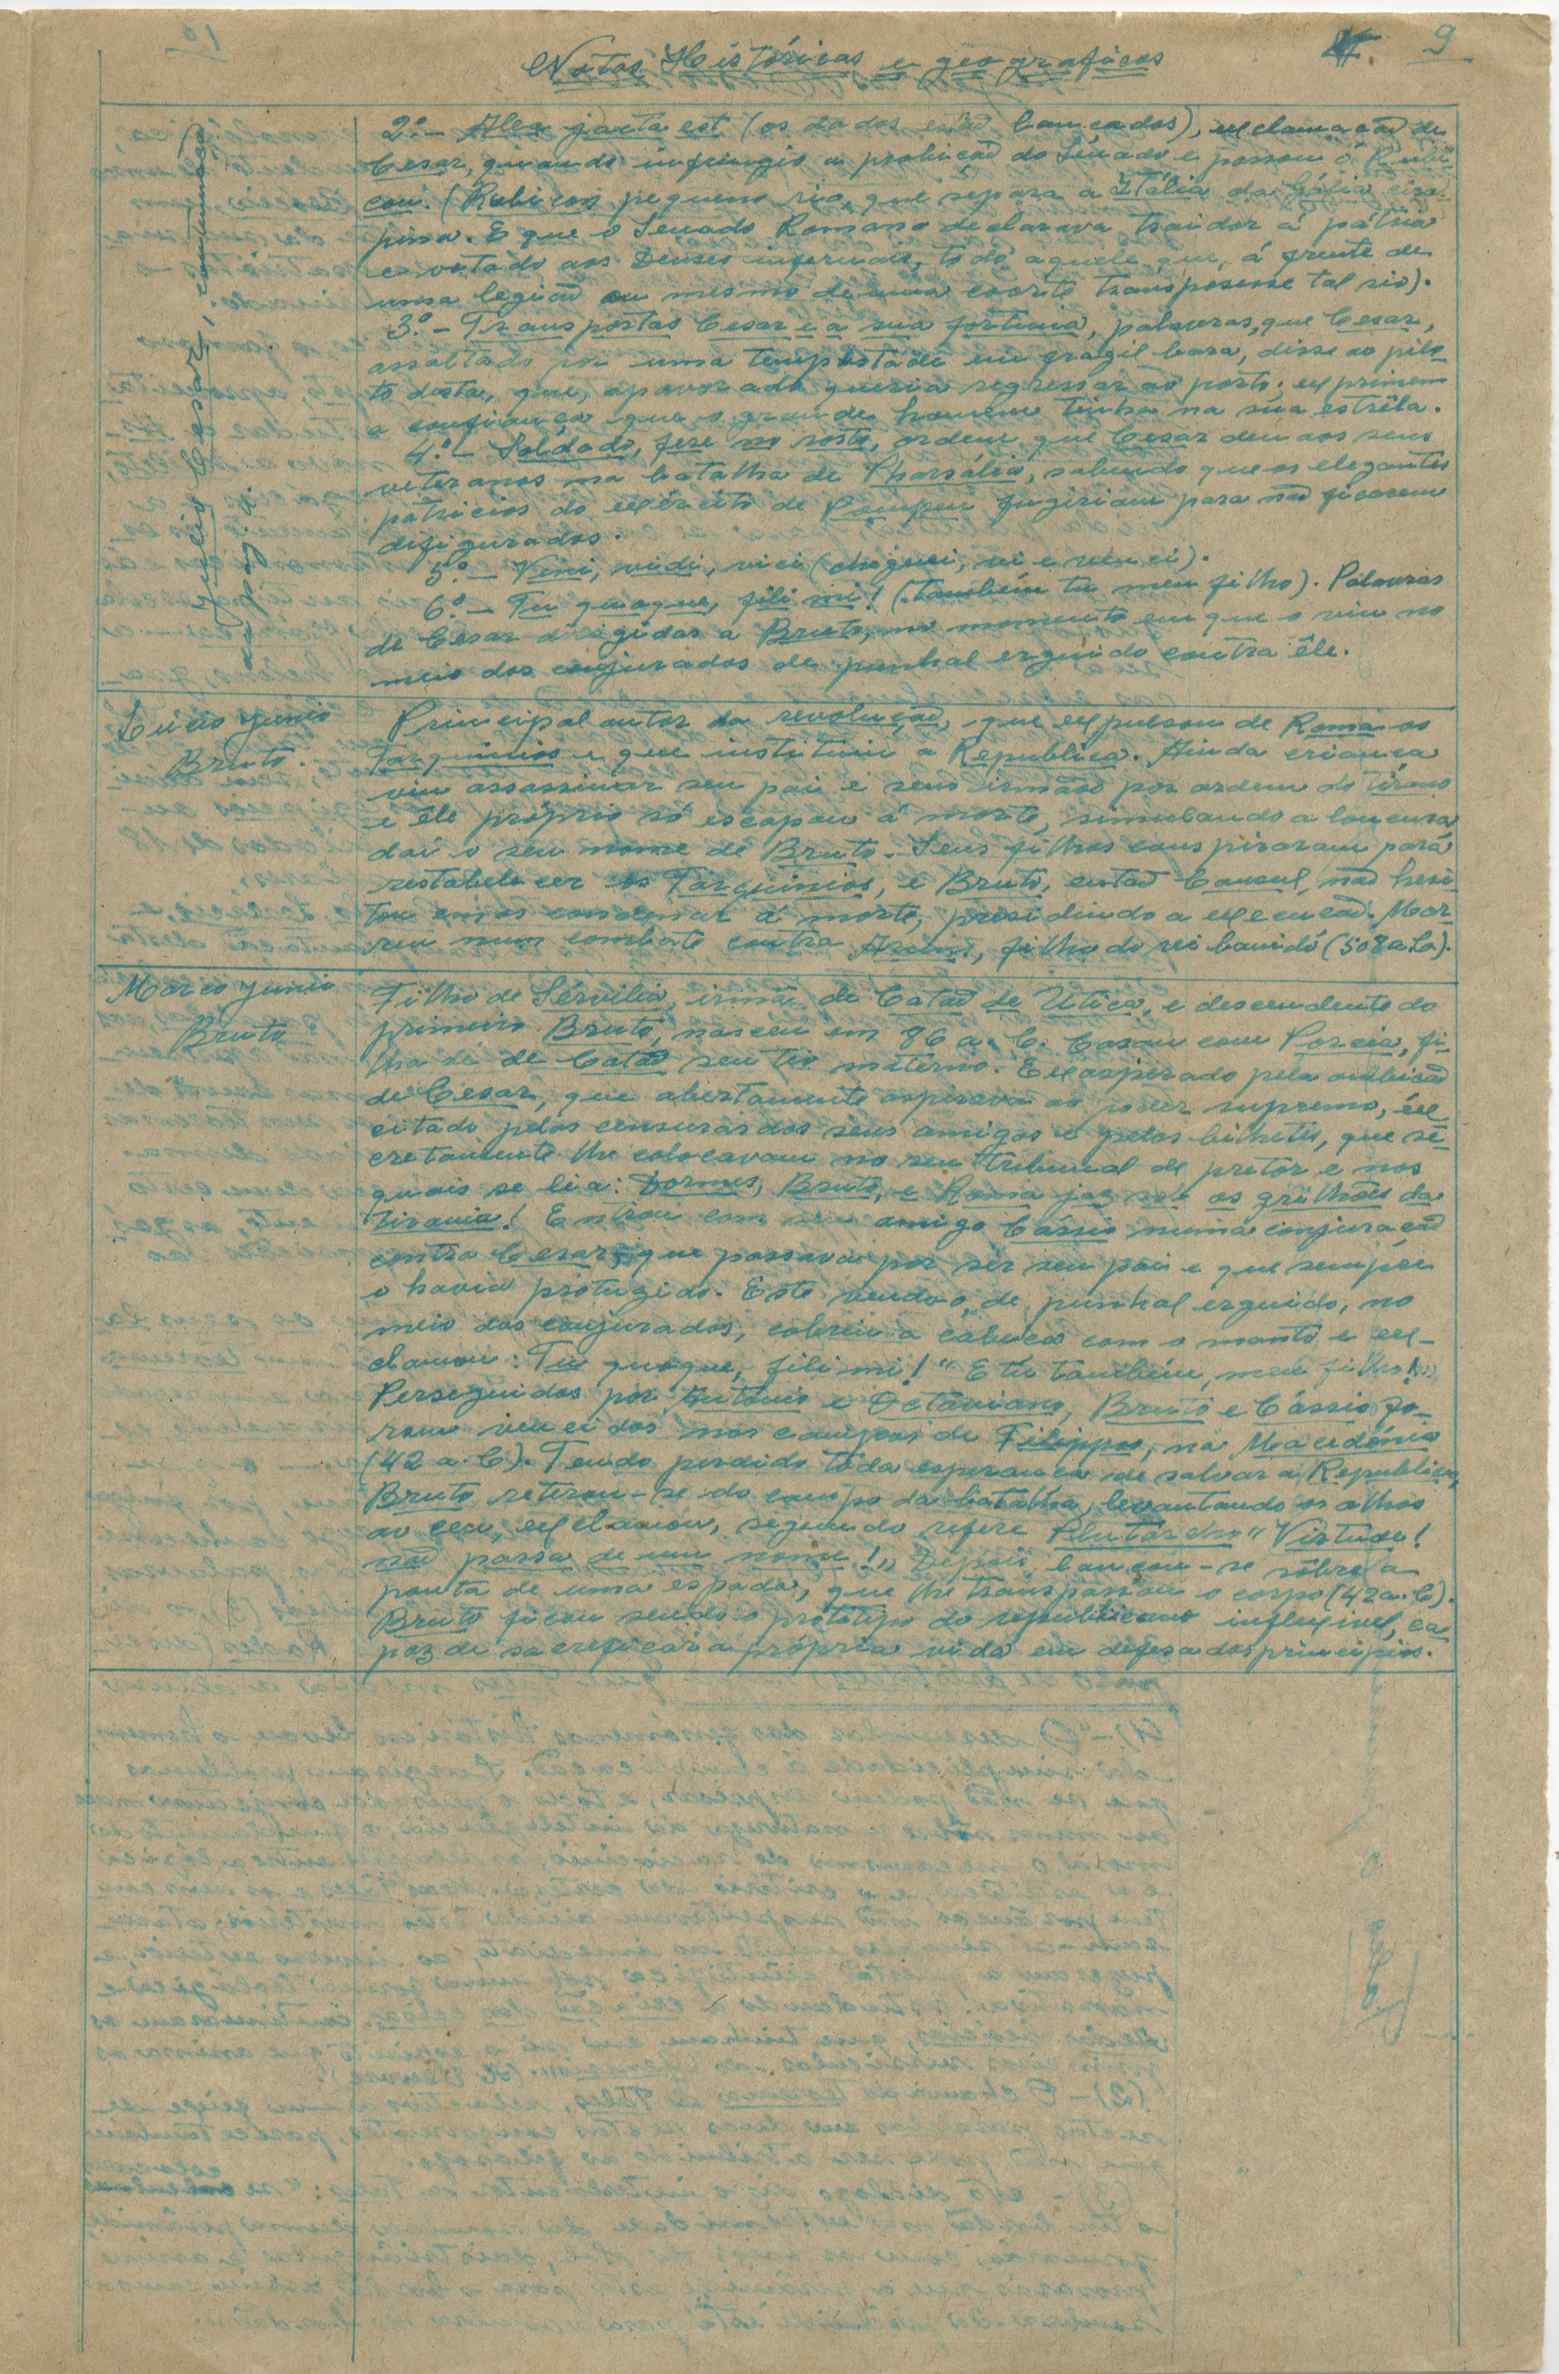 Notas Históricas e geograficas
9
Caio Julio Cesar, continuação
2º - Alea jacta est (os dados estão lançados), exclamação de
Cesar, quando infringio a proibição do Senado e passou o Rubi-
con. (Rubicon pequeno rio, que separa a Itália da Gália cisal-
pina. E que o Senado Romano declarava traidor á pátria
e votado aos Deuses infernais, todo aquele que, á frente de
uma legião ou mesmo de uma coorte transposesse tal rio).
3º - Transportas Cesar e a sua fortuna, palavras, que Cesar,
assaltado por uma tempestade em fragil barca, disse ao pilo-
to desta, que, apavorado queria regressar ao porto; exprimem
a confiança que o grande homem tinha na sua estrêla.
4º - Soldado, fere no rosto, ordem que Cesar deu aos seus
veteranos na batalha de Pharsália, sabendo que os elegantes
patricios do exército de Pompeu fugiriam para não ficarem
disfigurados.
5º - Veni, vidi, vici (cheguei, vi e venci).
6º - Tu quoque, fili mi! (também tu meu filho). Palavras
de Cesar dirigidas a Bruto, no momento em que o viu no
meio dos conjurados de punhal erguido contra êle.
Lúcio Junio
Bruto.
Principal autor da revolução, que expulsou de Roma os
Tarquinios e que instituiu a Republica. Ainda criança
viu assassinar seu pai e seus irmãos por ordem do tirano
e êle próprio só escapou á morte, simulando a loucura
daí o seu nome de Bruto. Seus filhos conspiraram para
restabelecer os Tarquinios, e Bruto, então Consul, não hesi-
tou em os condenar á morte, presidindo a execução. Mor-
reu num combate contra Aruns, filho do rei banido (508 a.C.).
Marco Junio
Bruto
Filho de Servilia, irmã de Catão de Utica, e descendente do
primeiro Bruto, nasceu em 86 a. C. Casou com Porcia, fi-
lha de de Catão seu tio materno. Exasperado pela ambição
de Cesar, que abertamente aspirava ao poder supremo, ex-
citado pelas censuras dos seus amigos e pelos bilhetes, que se-
cretamente lhe colocavam no seu tribunal de pretôr e nos
quais se lia: Dormes, Bruto, e Roma jaz sob os grilhões da
tirania! Entrou com seu amigo Cássio numa conjuração
contra Cesar, que passava por ser seu pai e que sempre
o havia protegido. Este vendo-o, de punhal erguido, no
meio dos conjurados, cobriu a cabeça com o manto e ex-
clamou: Tu quoque, fili mi! "E tu também, meu filho!"
Perseguidos por António e Octaviano, Bruto e Cássio fo-
ram vencidos nos campos de Filippos, na Macedónia
(42 a. C). Tendo perdido toda esperança de salvar a Republica,
Bruto retirou-se do campo da batalha, levantando os olhos
ao ceu, exclamou, segundo refere Plutarcho "Virtude!
não passa de um nome!" Depois lançou-se sôbre a
ponta de uma espada, que lhe transpassou o corpo (42 a. C).
Bruto ficou sendo o prototipo do republicano inflexivel, ca-
paz de sacreficar a própria vida em defesa dos principios.